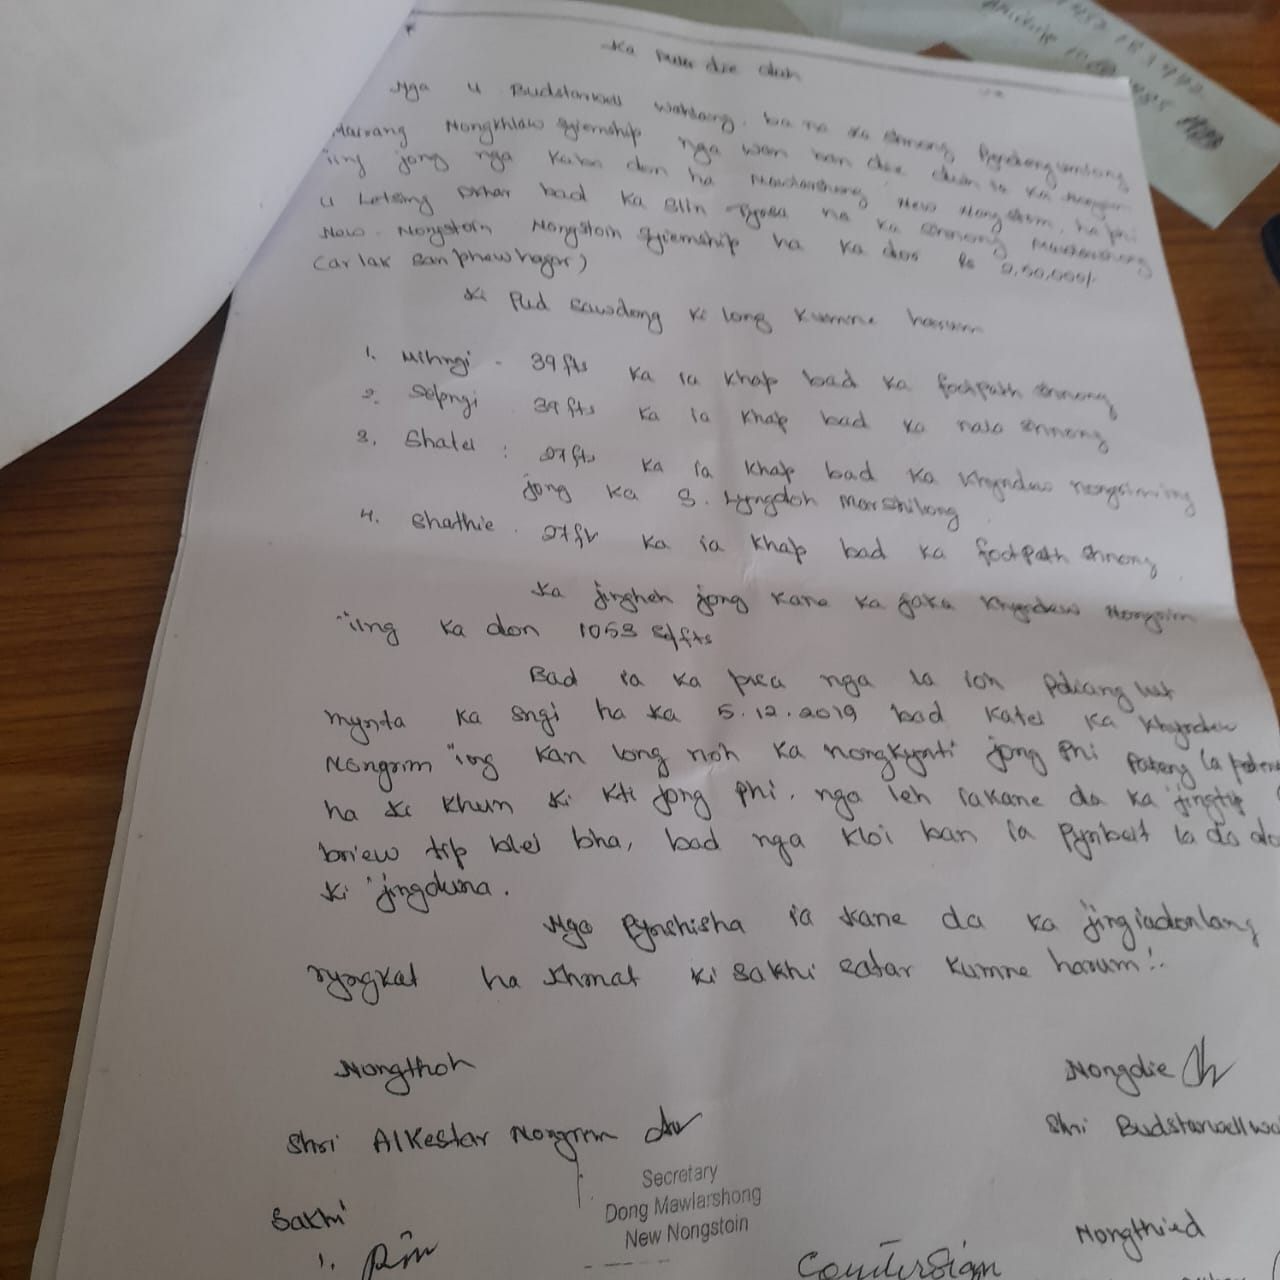 Ka die duh
Nga u Budstarwell Wahlang, ba na ka shnong
Mairang Nongkhlaw Syiemship nga wan ban die duh ia ka
iing jong nga kaba don ha Mawlarshong New Nongstoin, ha phi
u Lotsing Dkhar bad ka na ka shnong Mawlarshong
New - Nongstoin Nongstoin Syiemship ha ka dor Rs 2,50,000/-
(ar lak san phew hajar)
Ki Pud Sawdong ki long kumne harum
1. Mihngi - 39 fts ka ia khap bad ka footpath shnong
2. Sepngi 39 fts ka ia khap bad ka nala shnong
3. Shatei : 27 fts ka ia khap bad ka khyndew nongrim iing
jong ka S. Lyngdoh Marshilong
4. Shathie . 27 ft ka ia khap bad ka footpath shnong
Ka jingheh jong kane ka jaka khyndew Nongrim
iing ka don 1053 Sqfts
Bad ia ka pisa nga la ioh pdiang lut
mynta ka sngi ha ka 5.12.2019 bad katei ka khyndew
Nongrim iing kan long noh ka nongkynti jong phi pateng la pateng
ha ki khun ki kti jong phi. nga leh iakane da ka jingtip
briew tip blei bha, bad nga kloi ban ia pynbeit la do
ki jingduna.
Nga pynshisha ia kane da ka jingiadonlang
ryngkat ha khmat ki sakhi Batar kumne harum :-
Nongthoh
Nongdie
Shri Alkestar Nongrim
Shri Budstarwell
Secretary
Dong Mawlarshong
New Nongstoin
Sakhi
1.
Nongthied
Countersign